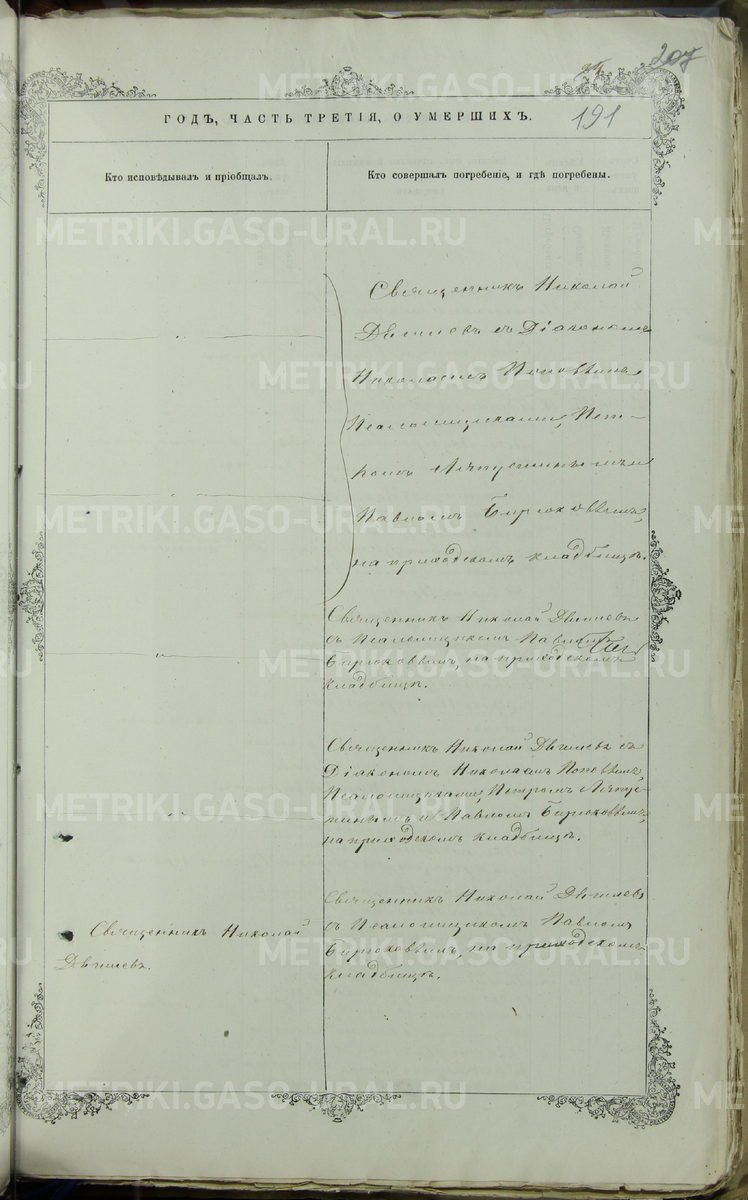 207
191
ГОДЪ, ЧАСТЬ ТРЕТІЯ, О УМЕРШИХЪ.
Кто исповѣдывалъ и пріобщалъ.
Кто совершалъ погребеніе, и гдѣ погребены.
Священникъ Николай
съ Діакономъ
Николаемъ Поповымъ
Псаломщиками, Пет-
ромъ
Павломъ Бирюковымъ,
на приходскомъ кладбищѣ.
Священникъ Николай
съ Псаломщикомъ Павломъ
Бирюковымъ, на приходскомъ
кладбищѣ.
Священникъ Николай съ
Діакономъ Николаемъ Поповымъ,
Псаломщиками, Петромъ
и Павломъ Бирюковымъ,
на приходскомъ кладбищѣ.
Священникъ Николай
Священникъ Николай
съ Псаломщикомъ Павломъ
Бирюковымъ, на приходскомъ
кладбищѣ.
METRIKI.GASO-URAL.RU